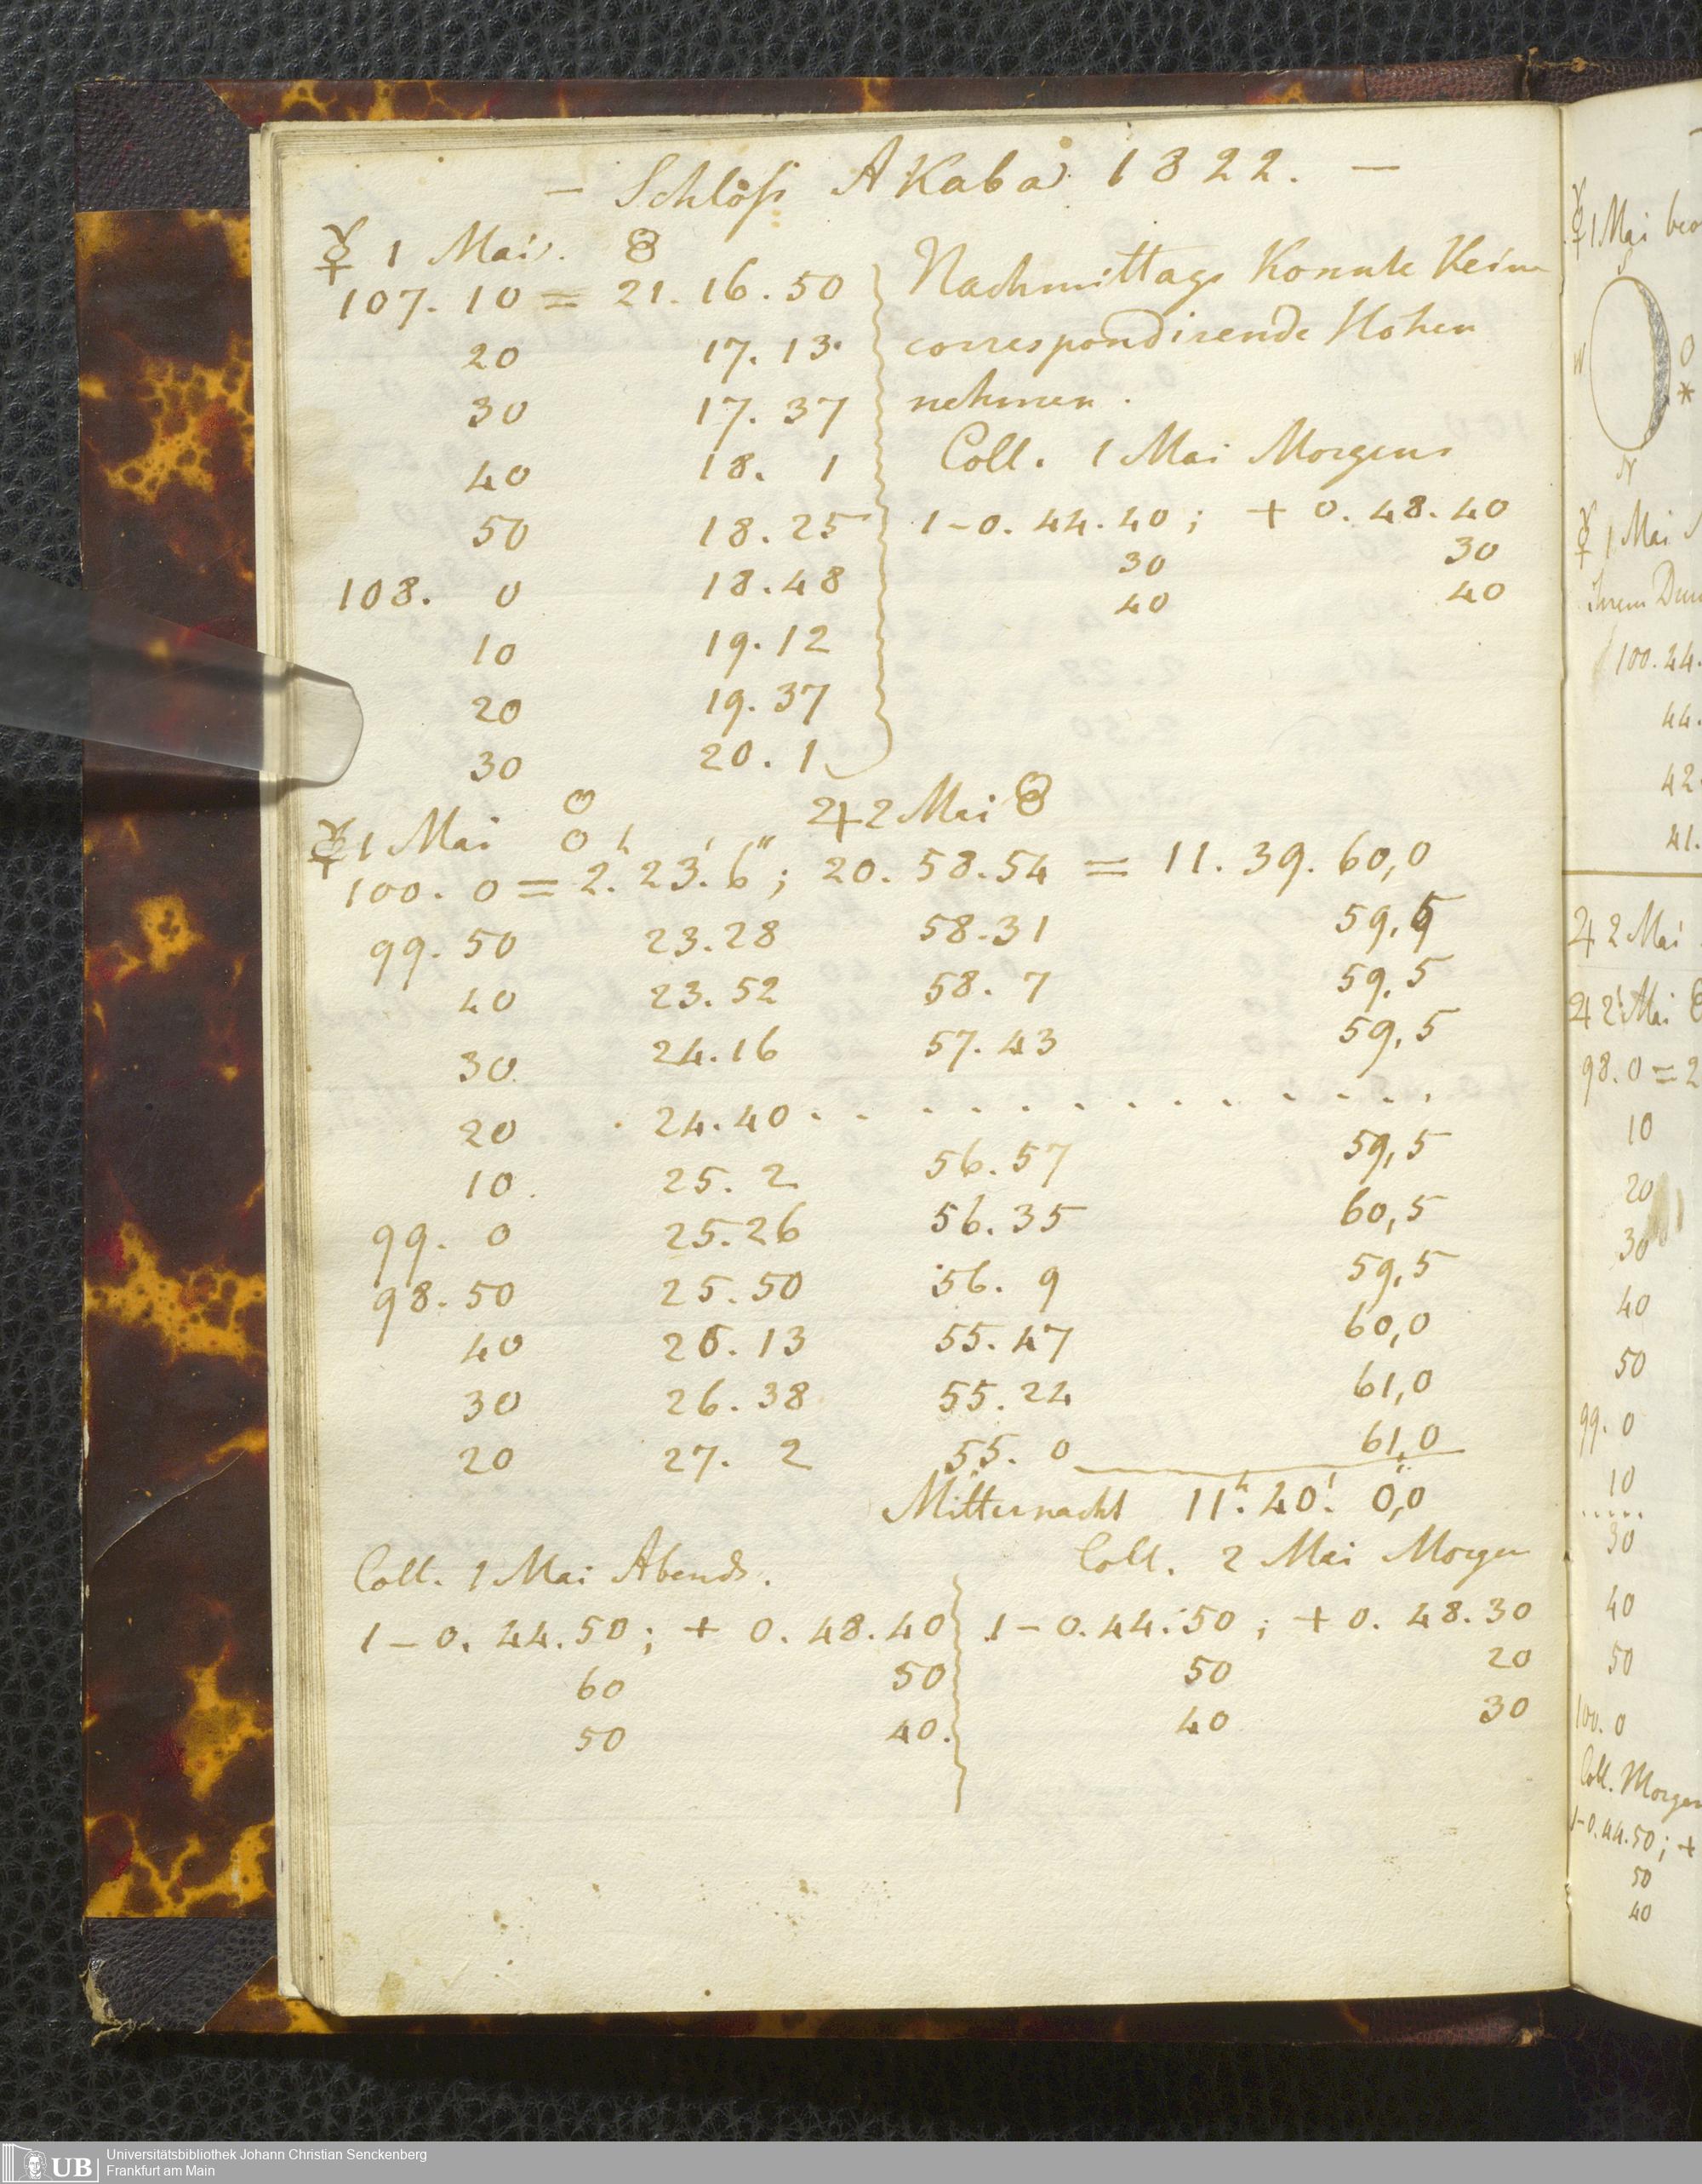 — Schloß AKaba 1822. —
☿ 1 Mai.
107. 10 = 21. 16. 50
20 17. 13.
30 17. 37
40 18. 1
50 18. 25
108. 0 18. 48
10 19. 12
20 19. 37
30 20. 1
Nachmittags Konnte Keine
correspondirende Höhen
nehmen.
Coll. 1 Mai Morgens
1 - 0. 44. 40; + 0. 48. 40
30 30
40 40
☿ 1 Mai ♃ 2 Mai
100. 0 = 2. 23. 6"; 20. 58. 54 = 11. 39. 60,0
99. 50 23. 28 58. 31 59,5
40 23. 52 58. 7 59,5
30 24. 16 57. 43 59,5
20 . 24. 40 . . . . . . . . . . . . .
10. 25. 2 56. 57 59,5
99. 0 25. 26 56. 35 60,5
98. 50 25. 50 56. 9 59,5
40 26. 13 55. 47 60,0
30 26. 38 55. 24 61,0
20 27. 2 55. 0 61,0
Mitternacht 11h. 40'. 0",0
Coll. 1 Mai Abends.
1 - 0. 44. 50; + 0. 48. 40
60 50
50 40.
Coll. 2 Mai Morgen
1 - 0. 44. 50; + 0. 48. 30
50 20
40 30
☿ 1 Mai
S
W O
*
N
☿ 1 Mai
ihrem
100. 44.
44.
42.
41.
♃ 2 Mai
♃ 2 Mai
98. 0 = 2
10
20
30
40
50
99. 0
10
. . . . .
30
40
50
100. 0
Coll. Morgen
1 - 0. 44. 50; +
50
40
UB Universitätsbibliothek Johann Christian Senckenberg
Frankfurt am Main